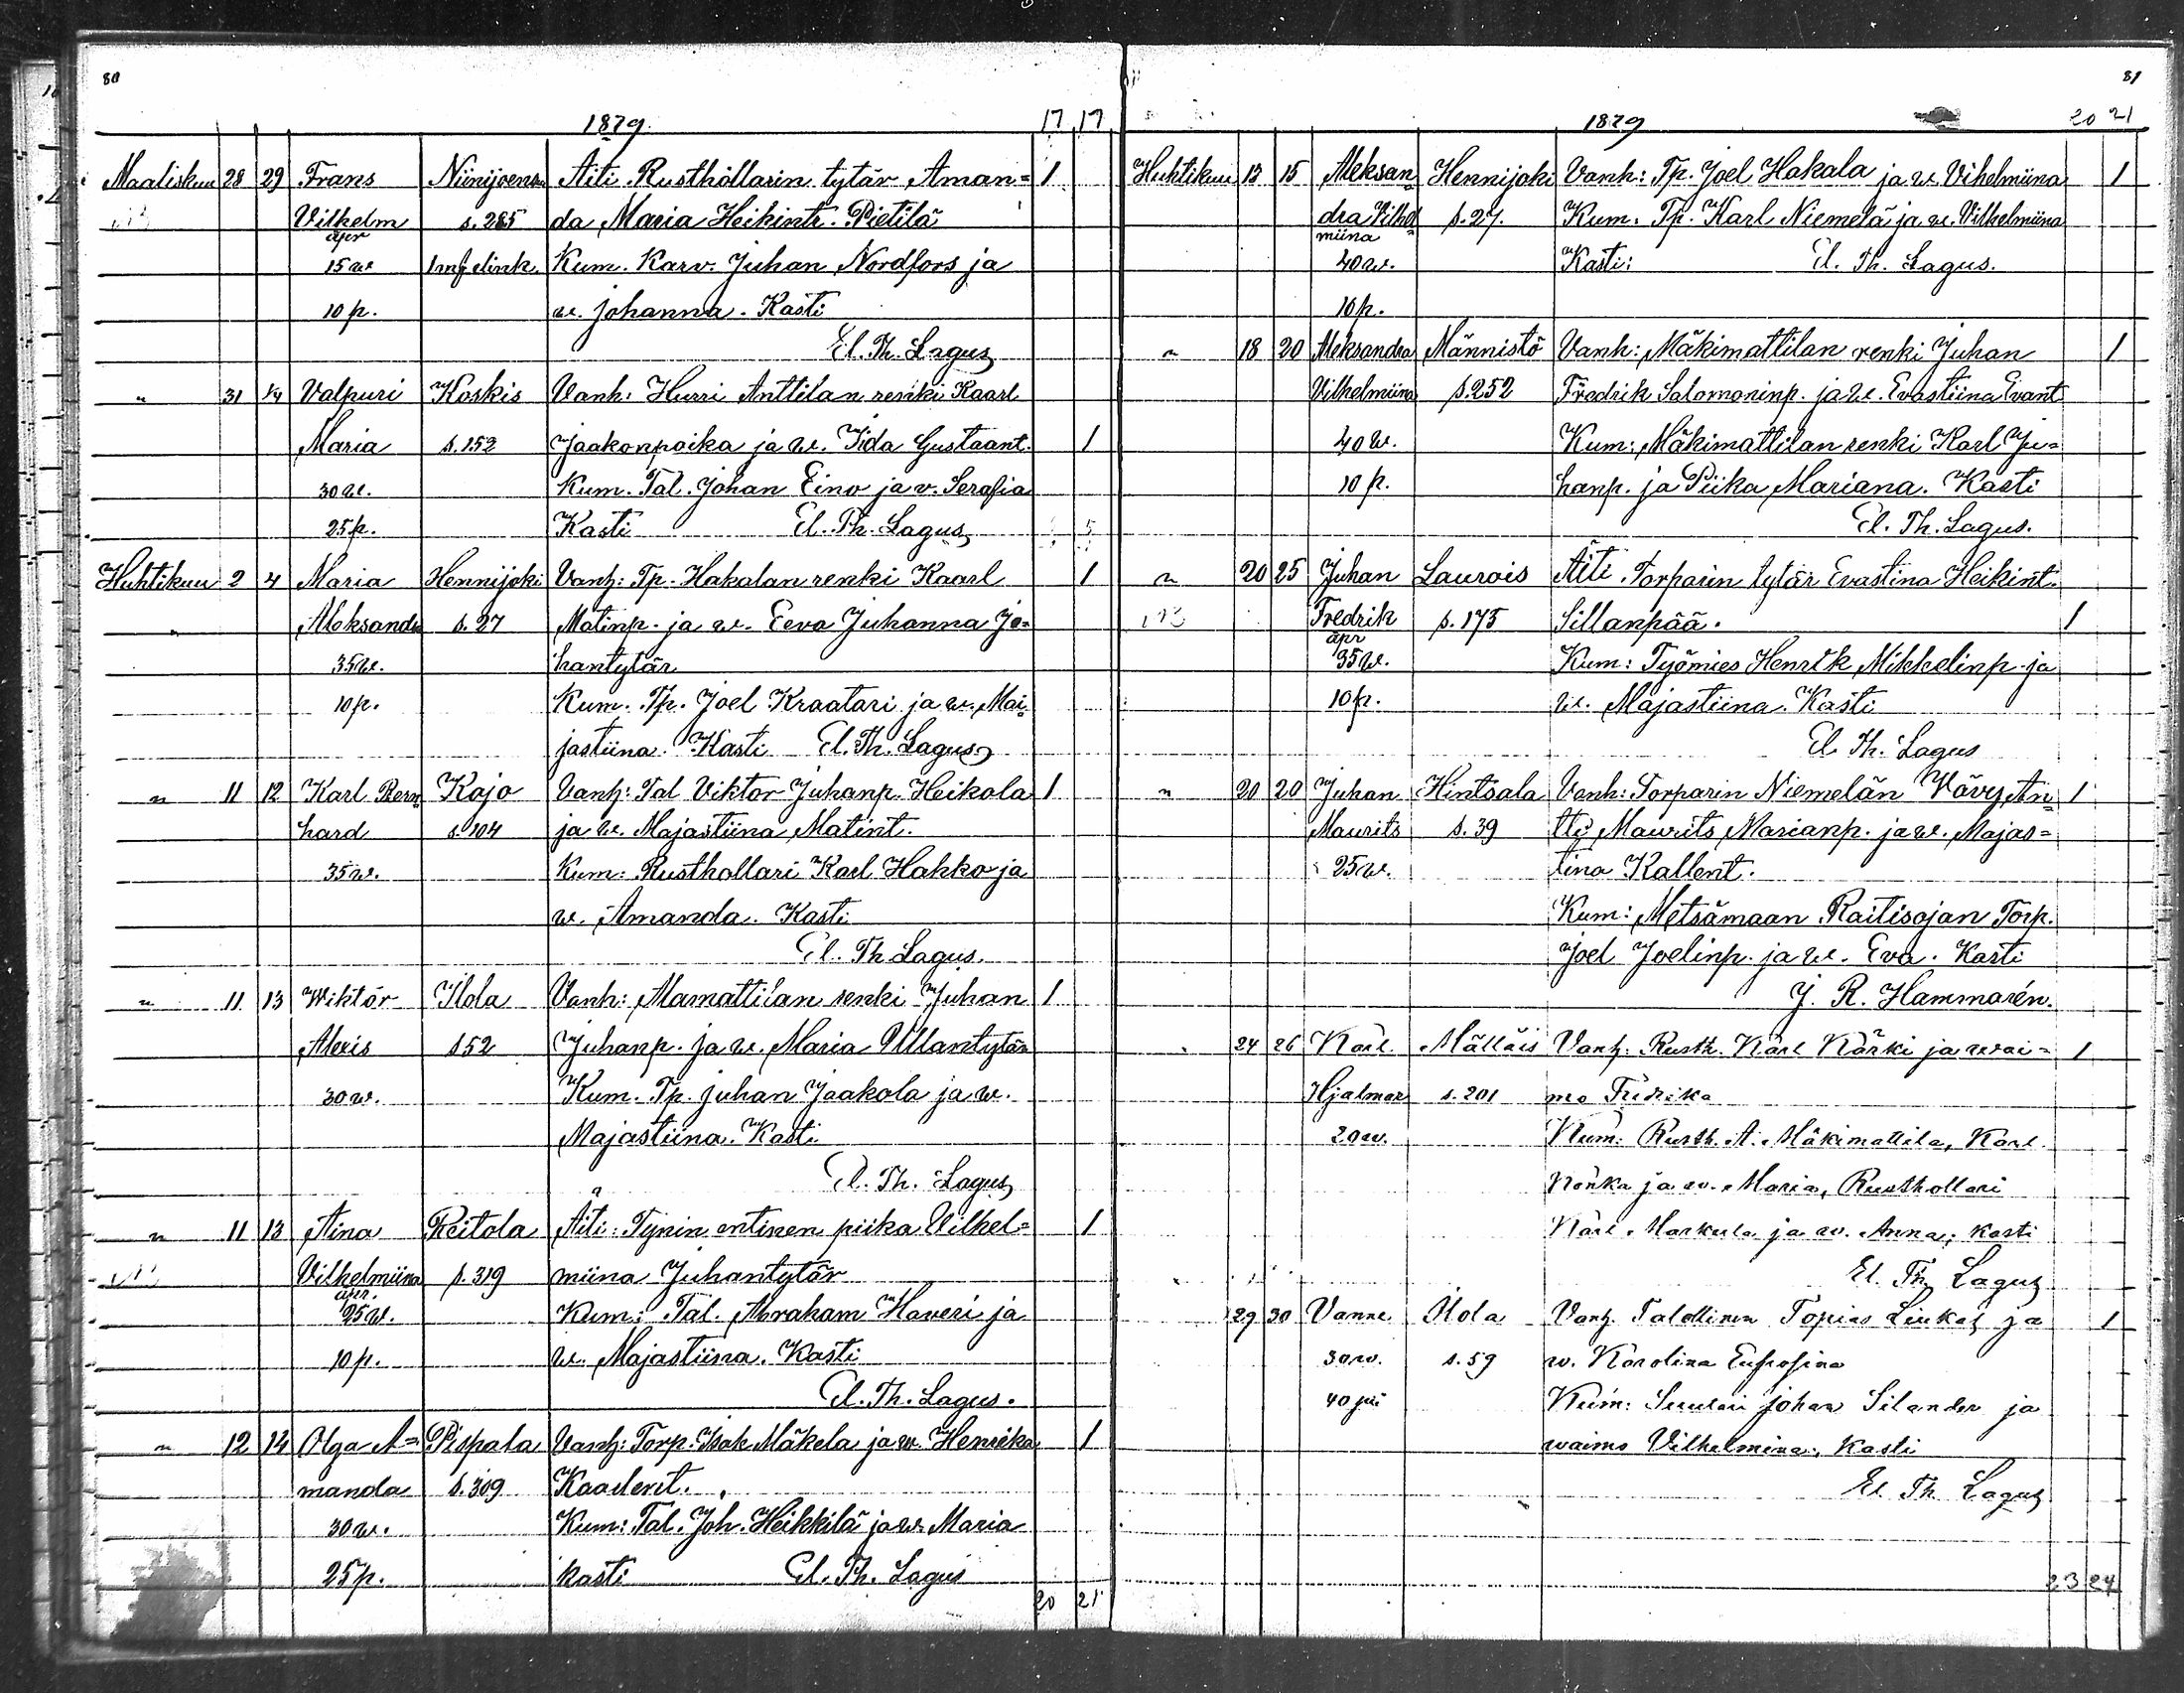 80
1879. 17 17
Maaliskuu 28 29 Frans Niinijoensu Äiti. Rusthollarin tytär Aman= 1
Vilhelm s. 285 da Maria Heikintr. Pietilä
äpr
15 w. Kum. Karv. Juhan Nordfors ja
10 p. w. Johanna. Kasti
El. Th. Lagus
" 31 1/4 Valpuri Koskis Vanh: Hurri Anttilan renki Kaarl
Maria s. 152 Jaakonpoika ja w. Iida Gustaant. 1
30 w. Kum. Tal. Johan Eino ja v. Serafia
25 p. Kasti El. Th. Lagus
Huhtikuu 2 4 Maria Hennijoki Vanh: Tp. Hakalan renki Kaarl 1
" Aleksandra s. 27 Matinp. ja w. Eeva Juhanna Jo=
35 w. hantytär
10 p. Kum. Tp. Joel Kraatari ja w. Mai=
jastiina. Kasti El. Th. Lagus
" 11 12 Karl Bern= Kojo Vanh: Tal Viktor Juhanp. Heikola 1
hard s. 104 ja w. Majastiina Matint.
35 w. Kum: Rusthollari Karl Hakko ja
w. Amanda. Kasti
El. Th Lagus.
" 11 13 Wiktor Ilola Vanh: Mamattilan renki Juhan 1
Alexis s 52 Juhanp. ja w. Maria Ullantytär
30 w. Kum. Tp. Juhan Jaakola ja w.
Majastiina. Kasti
El. Th. Lagus
" 11 13 Aina Reitola Äiti: Tynin entinen piika Vilhel= 1
Vilhelmiina s. 319 miina Juhantytär
äpr.
25 w. Kum: Tal. Abraham Haveri ja
10 p. w. Majastiina. Kasti
El. Th. Lagus.
" 12 14 Olga A= Pispala Vanh: Torp. Isak Mäkela ja w. Henrika 1
manda s. 309 Kaaderit.
30 w. Kum: Tal. Joh. Heikkilä ja w. Maria
25 p. kasti El. Th. Lagus
20 21
81
1879 20 21
Huhtikuu 13 15 Aleksan= Hennijoki Vanh: Tp. Joel Hakala ja w. Vihelmiina 1
dra Vilhel= s. 27. Kum. Tp. Karl Niemelä ja w. Vilhelmiina
miina
40 w. Kasti: El. Th. Lagus.
10 p.
" 18 20 Aleksandra Männistö Vanh: Mäkimattilan renki Juhan 1
Vilhelmiina s. 252 Fredrik Salomoninp. ja w. Evastiina Evant
40 w. Kum: Mäkimattilan renki Karl Ju=
10 p. hanp. ja Piika Mariana. Kasti
El. Th. Lagus.
" 20 25 Juhan Laurois Äiti. Torparin tytär Evastina Heikint.
Fredrik s. 175 Sillanpää. 1
äpr
35 w. Kum: Työmies Henrik Mikkelinp. ja
10 p. w. Majastiina. Kasti
El Th. Lagus
" 20 20 Juhan Hintsala Vanh: Torparin Niemelän Vävy An= 1
Maurits s. 39 tti Maurits Marianp. ja w. Majas=
25 w. tina Kallent.
Kum: Metsämaan Raitisojan Torp.
Joel Joelinp. ja w. Eva. Kasti
J. R. Hammarén.
" 24 26 Karl Mälläis Vanh: Rusth. Karl Kärki ja wai= 1
Hjalmar s. 201 mo Fredrika
20 w. Kum: Rusth. A. Mäkimattila, Karl
ja w. Maria, Rusthollari
Karl Markula ja w. Anna; kasti
El. Th Lagus
29 30 Vanne Ilola Vanh. Talollinen Topias Liukas ja 1
30 w. s. 59 w. Karolina Eufrosina
40 pä Kum: Suutari Johan Silander ja
waimo Vilhelmina; Kasti
El. Th Lagus
23 24